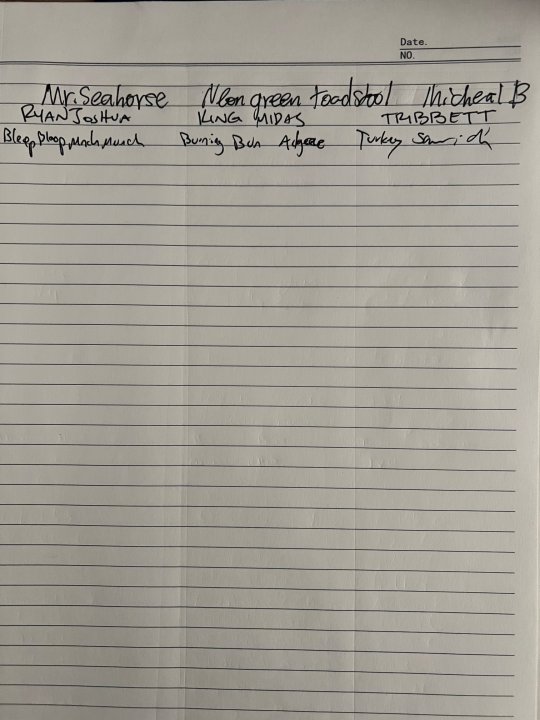 Date.
NO.
Mr. Seahorse Neon green toadstool Micheal B
RYAN JOSHUA KING MIDAS TRIBBETT
Bleep, Bloop, Munch, Munch Bun Turkey